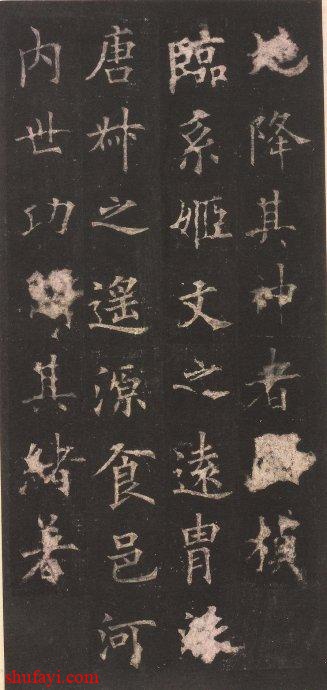 地降其神者桢
临系姬文之远胄派
唐叔之遥源食邑河
内世功其绪着
shufayi.com